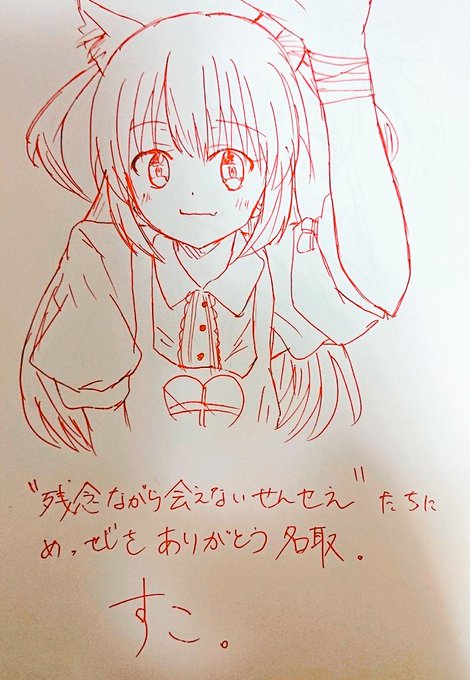 "残念ながら会えないせんせえ"たちに
めっせじをありがとう名取。
すこ。